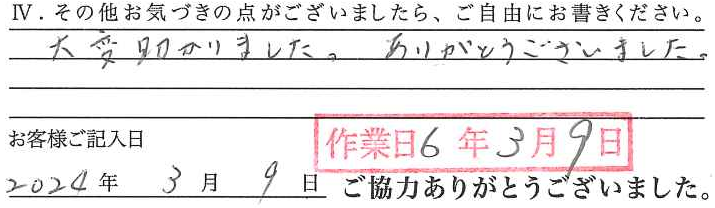 Ⅳ．その他お気づきの点がございましたら、ご自由にお書きください。
大変助かりました。ありがとうございました。
お客様ご記入日
作業日6年3月9日
2024年3月9日
ご協力ありがとうございました。